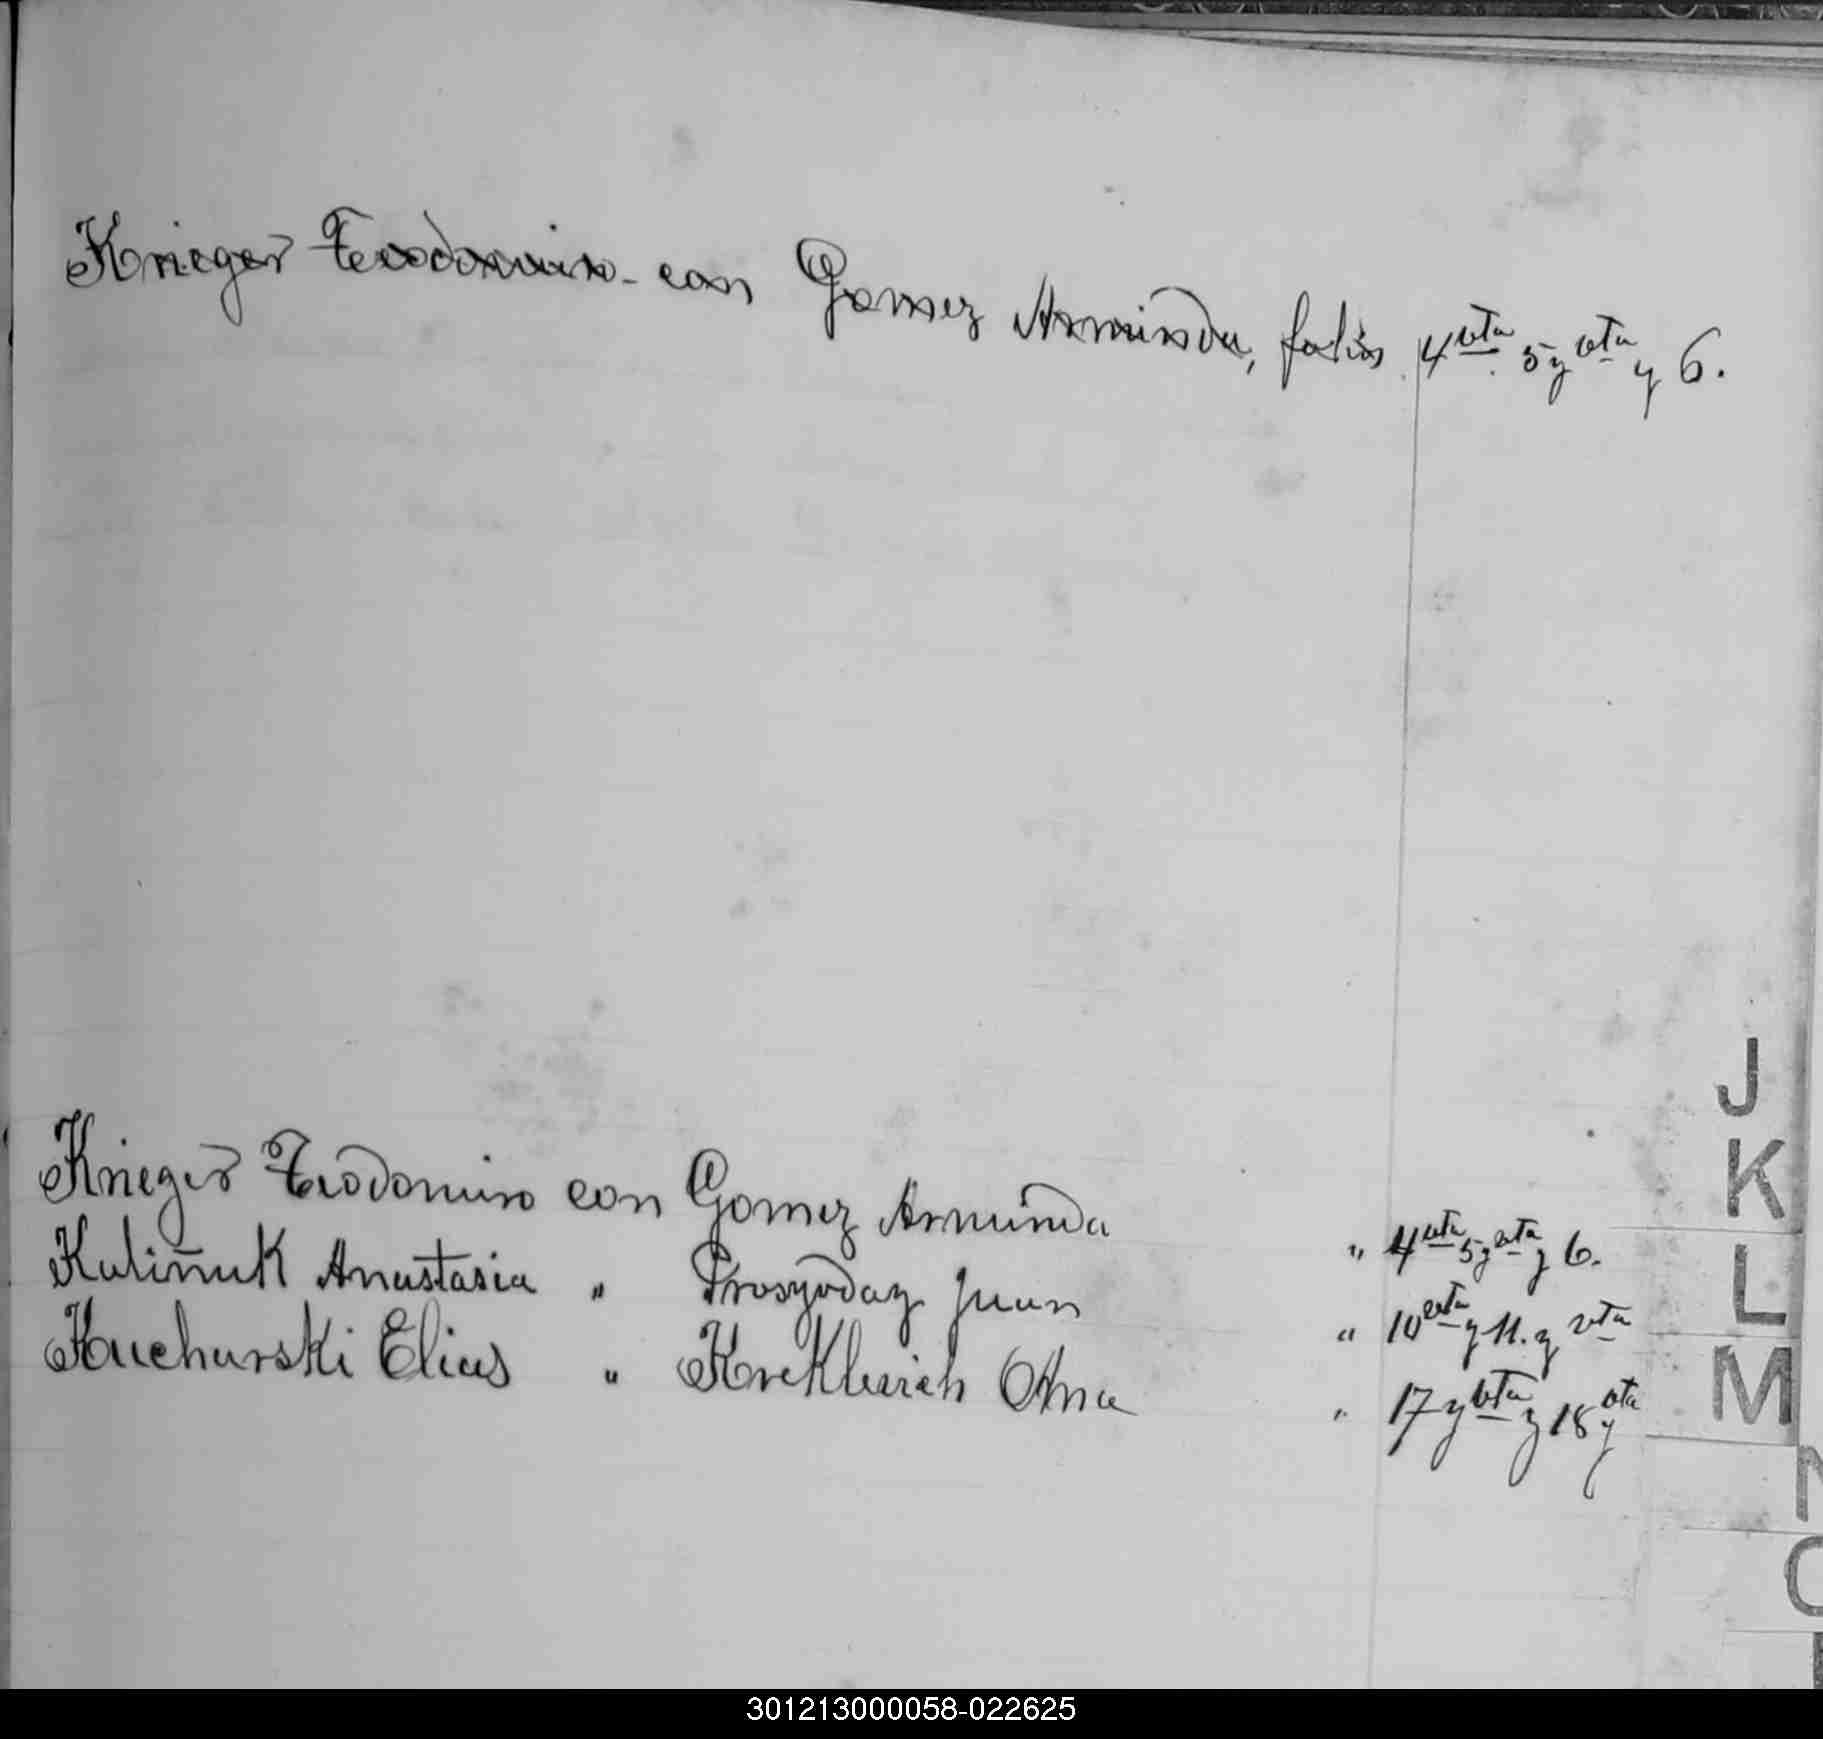 Krieger Teodomiro - con Gomez Arminda, folios 4 vta 5 y vta y 6.
Krieger Teodomiro con Gomez Arminda " 4 vta 5 y vta y 6.
Kuliñuk Anastasia " Prosyodaz Juan " 10 vta y 11. y vta
Kuchurski Elias " Ana " 17 y vta y 18 y vta
J
K
L
M
N
O
301213000058-022625